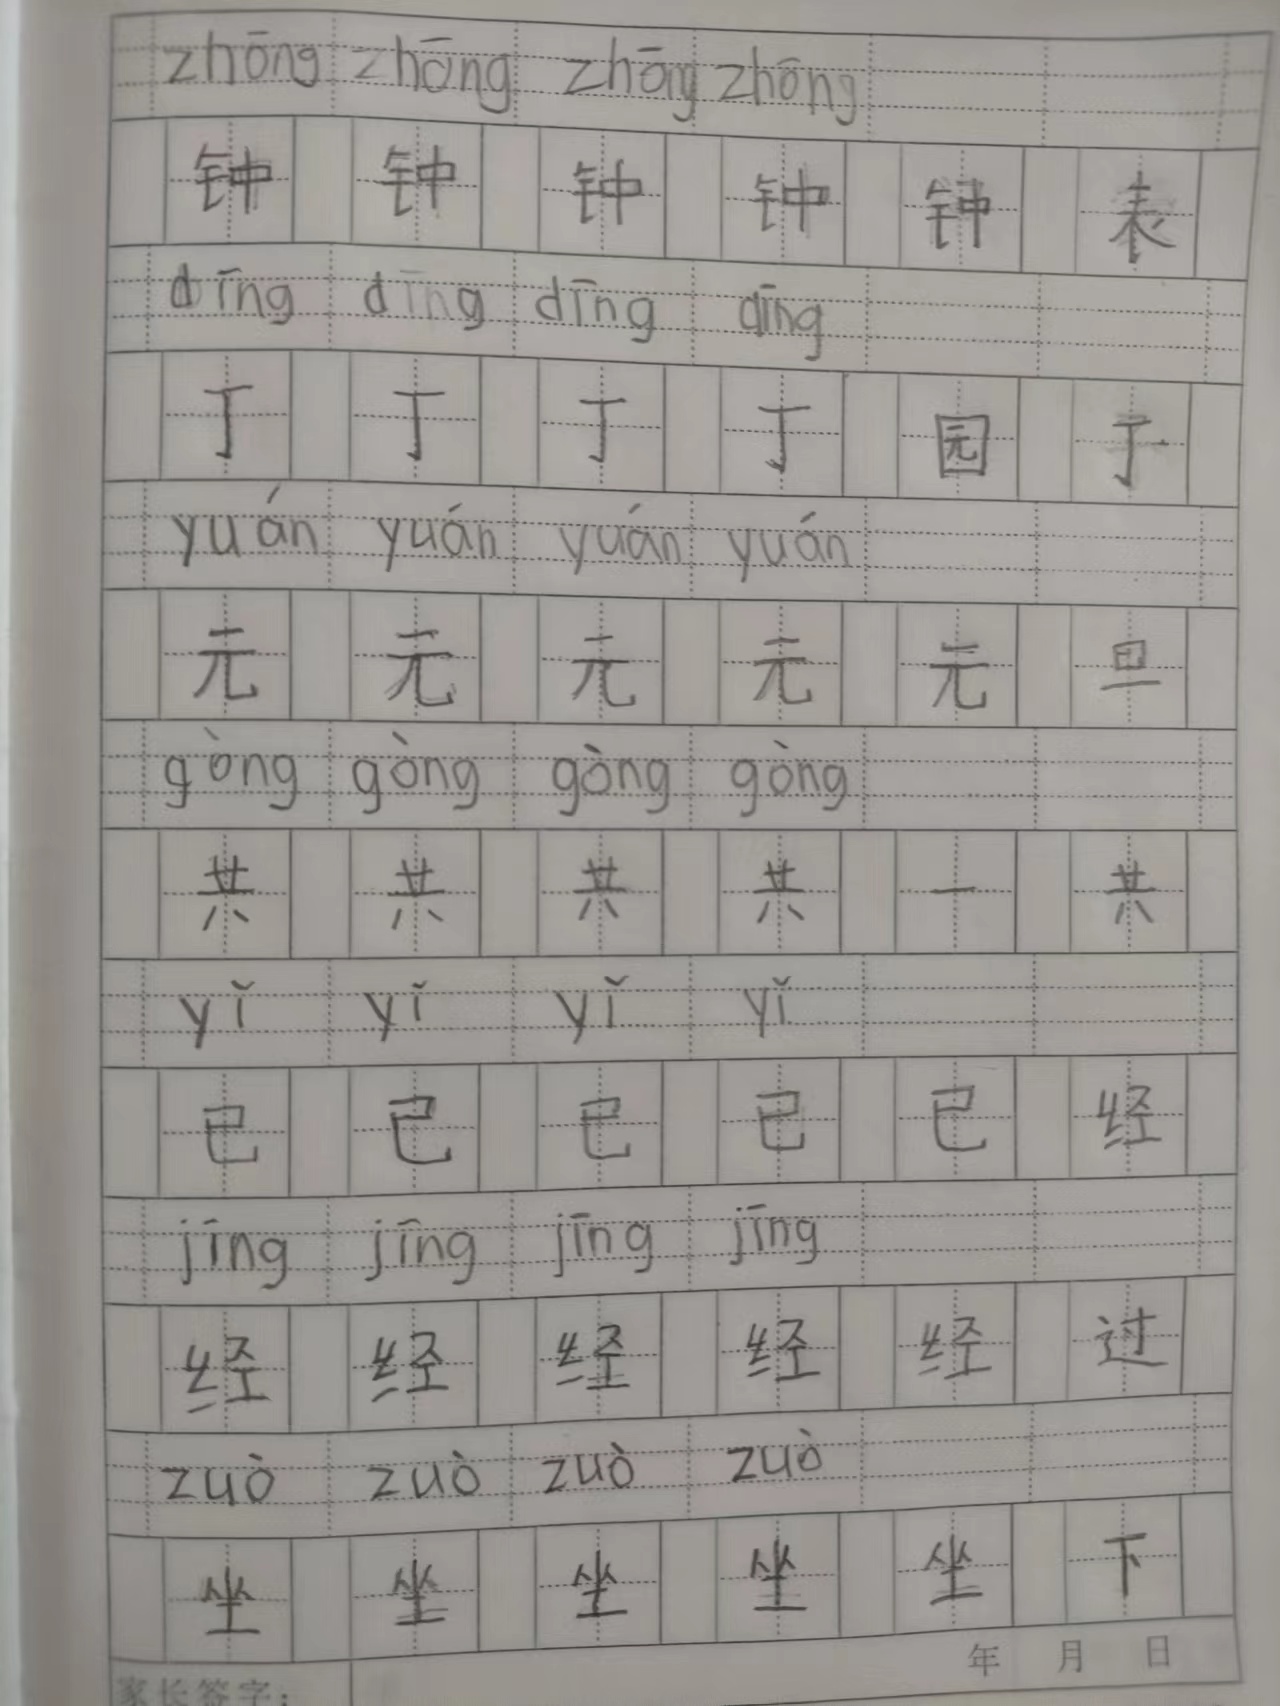 zhōng zhōng zhōng zhōng
钟 钟 钟 钟 钟 表
dīng dīng dīng dīng
丁 丁 丁 丁 园 丁
yuán yuán yuán yuán
元 元 元 元 元 旦
gòng gòng gòng gòng
共 共 共 共 一 共
yǐ yǐ yǐ yǐ
已 已 已 已 已 经
jīng jīng jīng jīng
经 经 经 经 经 过
zuò zuò zuò zuò
坐 坐 坐 坐 坐 下
年 月 日
家长签字：